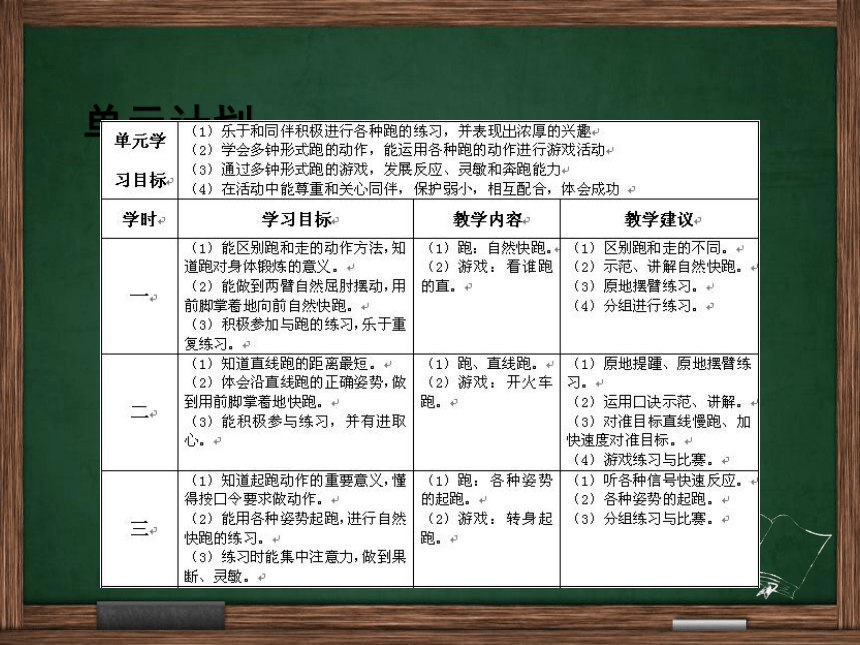 单元计划
单元学
习目标
（1）乐于和同伴积极进行各种跑的练习，并表现出浓厚的兴趣
（2）学会多钟形式跑的动作，能运用各种跑的动作进行游戏活动
（3）通过多钟形式跑的游戏，发展反应、灵敏和奔跑能力
（4）在活动中能尊重和关心同伴，保护弱小，相互配合，体会成功
学时
学习目标
教学内容
教学建议
一
（1）能区别跑和走的动作方法,知
道跑对身体锻炼的意义。
（2）能做到两臂自然屈肘摆动,用
前脚掌着地向前自然快跑。
（3）积极参加与跑的练习,乐于重
复练习。
（1）跑：自然快跑。
（2）游戏：看谁跑
的直。
（1）区别跑和走的不同。
（2）示范、讲解自然快跑。
（3）原地摆臂练习。
（4）分组进行练习。
二
（1）知道直线跑的距离最短。
（2）体会沿直线跑的正确姿势,做
到用前脚掌着地快跑。
（3）能积极参与练习，并有进取
心。
（1）跑、直线跑。
（2）游戏：开火车
跑。
（1）原地提踵、原地摆臂练
习。
（2）运用口诀示范、讲解。
（3）对准目标直线慢跑、加
快速度对准目标。
（4）游戏练习与比赛。
三
（1）知道起跑动作的重要意义,懂
得按口令要求做动作。
（2）能用各种姿势起跑,进行自然
快跑的练习。
（3）练习时能集中注意力,做到果
断、灵敏。
（1）跑：各种姿势
的起跑。
（2）游戏：转身起
跑。
（1）听各种信号快速反应。
（2）各种姿势的起跑。
（3）分组练习与比赛。